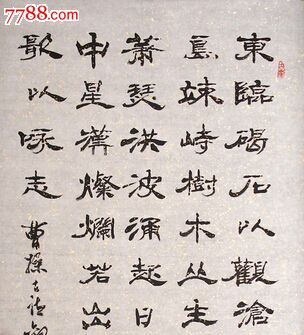 7788.com
中国收藏热线
東臨碣石以觀滄
島竦峙樹木丛生
蕭瑟洪波涌起日
中星漢燦爛若出
歌以咏志
曹操